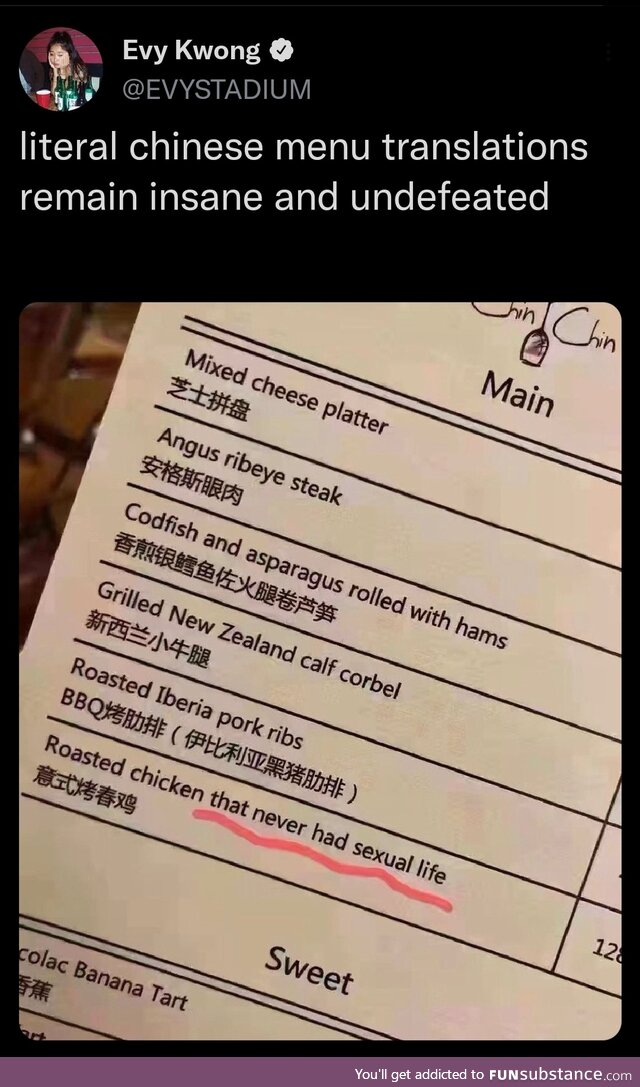 Evy Kwong
@EVYSTADIUM
literal chinese menu translations
remain insane and undefeated
Chin Chin
Main
Mixed cheese platter
芝士拼盘
Angus ribeye steak
安格斯眼肉
Codfish and asparagus rolled with hams
香煎银鳕鱼佐火腿卷芦笋
Grilled New Zealand calf corbel
新西兰小牛腿
Roasted Iberia pork ribs
BBQ烤肋排（伊比利亚黑猪肋排）
Roasted chicken that never had sexual life
意式烤春鸡
128
Sweet
colac Banana Tart
香蕉
You'll get addicted to FUNsubstance.com